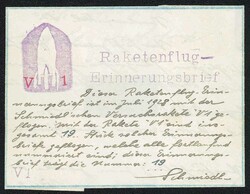 V 1
Raketenflug-
Erinnerungsbrief
Dieser Raketenflug-Erin-
nerungsbrief ist im Juli 1928 mit der
Schmiedl'schen Versuchsrakete "V1" ge-
flogen. Mit der Rakete V1 sind ins-
gesamt 19 Stück solcher Erinnerungs-
briefe geflogen, welche alle fortlaufend
numeriert sind; dieser Erinnerungs-
brief trägt die Nummer 19
Schmiedl
V1